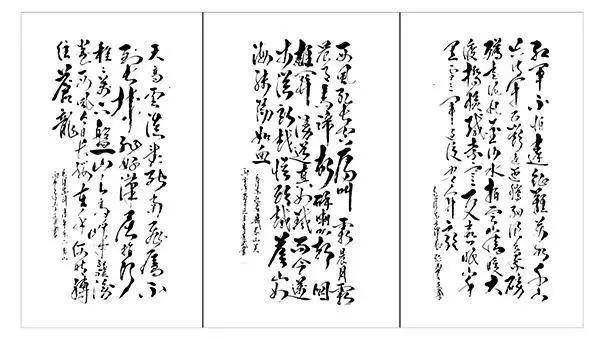 红军不怕遠征難万水千山
只等闲五岭逶迤腾细浪乌蒙磅
礴走泥丸金沙水拍雲崖暖大
渡橋横铁索寒更喜岷山千
里雪三軍过後尽开颜
西風烈长空雁叫霜晨月霜
晨月馬蹄声碎喇叭声咽
雄关漫道真如鐵而今邁
步從頭越從頭越蒼山如
海残陽如血
天高雲淡望断南飛雁不
到长城非好漢屈指行
程二万六盤山上高峰红旗漫
卷西風今日长缨在手何时縛
住蒼龍